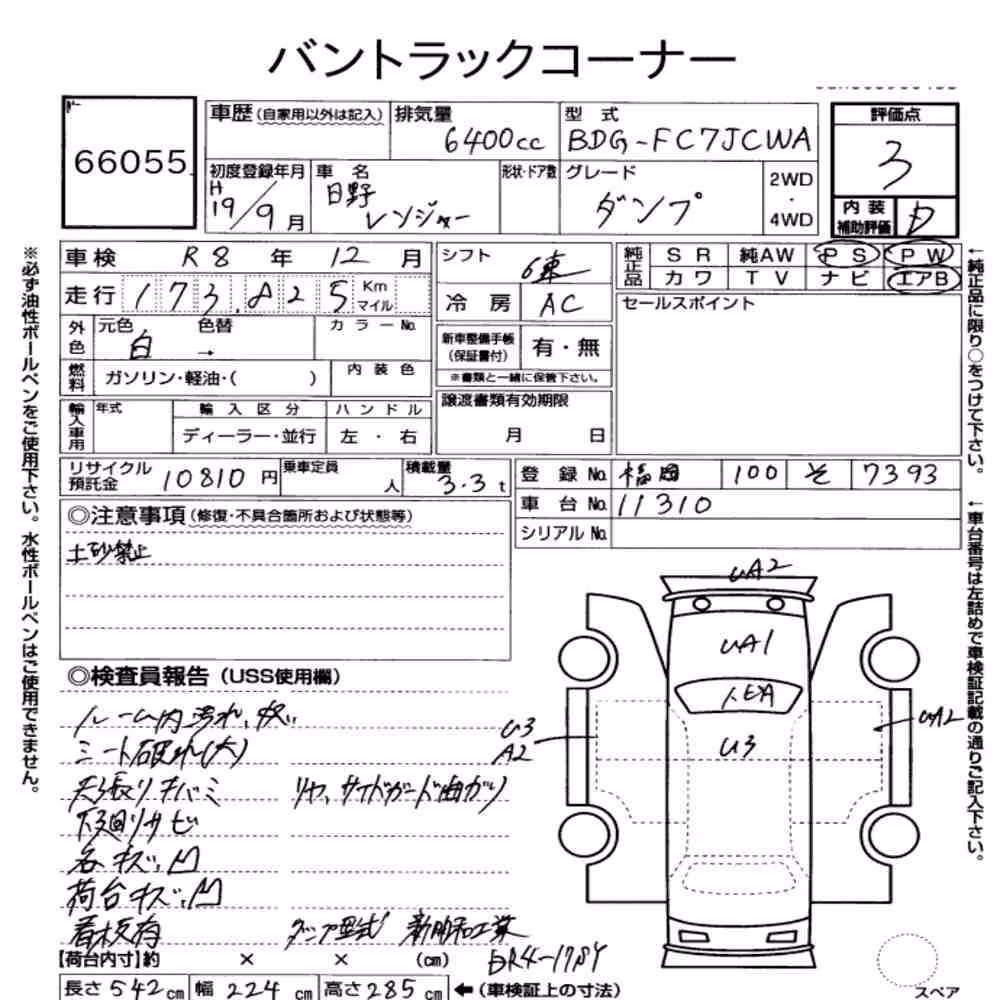 バントラックコーナー
66055
車歴 (自家用以外は記入)
排気量 6400cc
型式 BDG-FC7JCWA
評価点 3
内装補助評価 D
初度登録年月 H19/9月
車名 日野 レンジャー
形状・ドア数
グレード ダンプ
2WD・4WD
車検 R8年12月
走行 173,825 Km マイル
外色 元色 白 色替 →
カラーNo.
燃料 ガソリン・軽油・( )
内装色
輸入車用 年式
輸入区分 ディーラー・並行
ハンドル 左・右
シフト 6速
冷房 AC
新車整備手帳(保証書付) 有・無
※書類と一緒に保管下さい。
譲渡書類有効期限 月 日
純正品 SR 純AW PS PW
カワ TV ナビ エアB
セールスポイント
リサイクル預託金 10810円
乗車定員 人
積載量 3.3t
登録No. 福岡 100 そ 7393
車台No. 11310
シリアルNo.
◎注意事項 (修復・不具合箇所および状態等)
土砂禁止
◎検査員報告 (USS使用欄)
ルーム内汚れ、
シート破れ(大)
天張りキバミ
リヤ、サイドガード曲がり
下廻りサビ
各キズ、凹
荷台キズ、凹
看板有
ダンプ型式 新明和工業
DR4-178Y
【荷台内寸】約 × × (cm)
長さ542cm 幅224cm 高さ285cm ←(車検証上の寸法)
UA2
UA1
U3
U3
A2
UA2
スペア
※必ず油性ボールペンをご使用下さい。水性ボールペンはご使用できません。
←純正品に限り○をつけて下さい。
←車台番号は左詰めで車検証記載の通りご記入下さい。